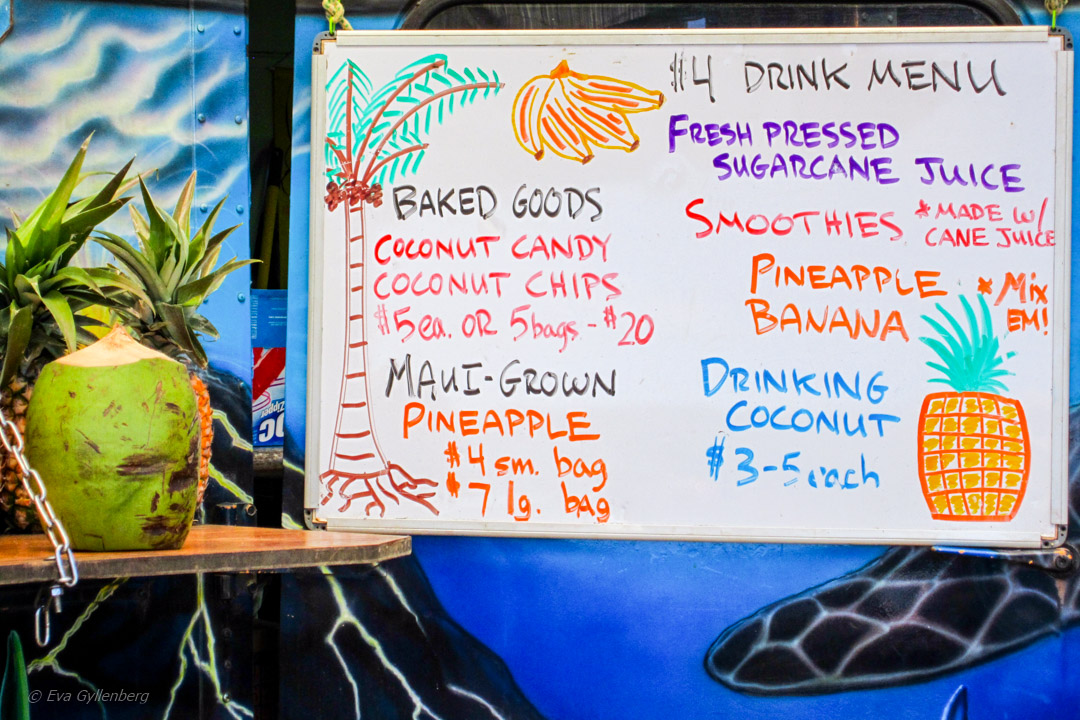 BAKED GOODS
COCONUT CANDY
COCONUT CHIPS
$5ea. OR 5bags - $20
MAUI-GROWN
PINEAPPLE
$4 sm. bag
$7 lg. bag
$4 DRINK MENU
FRESH PRESSED
SUGARCANE JUICE
SMOOTHIES *MADE W/
CANE JUICE
PINEAPPLE *MIX
BANANA EM!
DRINKING
COCONUT
$3-5 each
Zipper
© Eva Gyllenberg